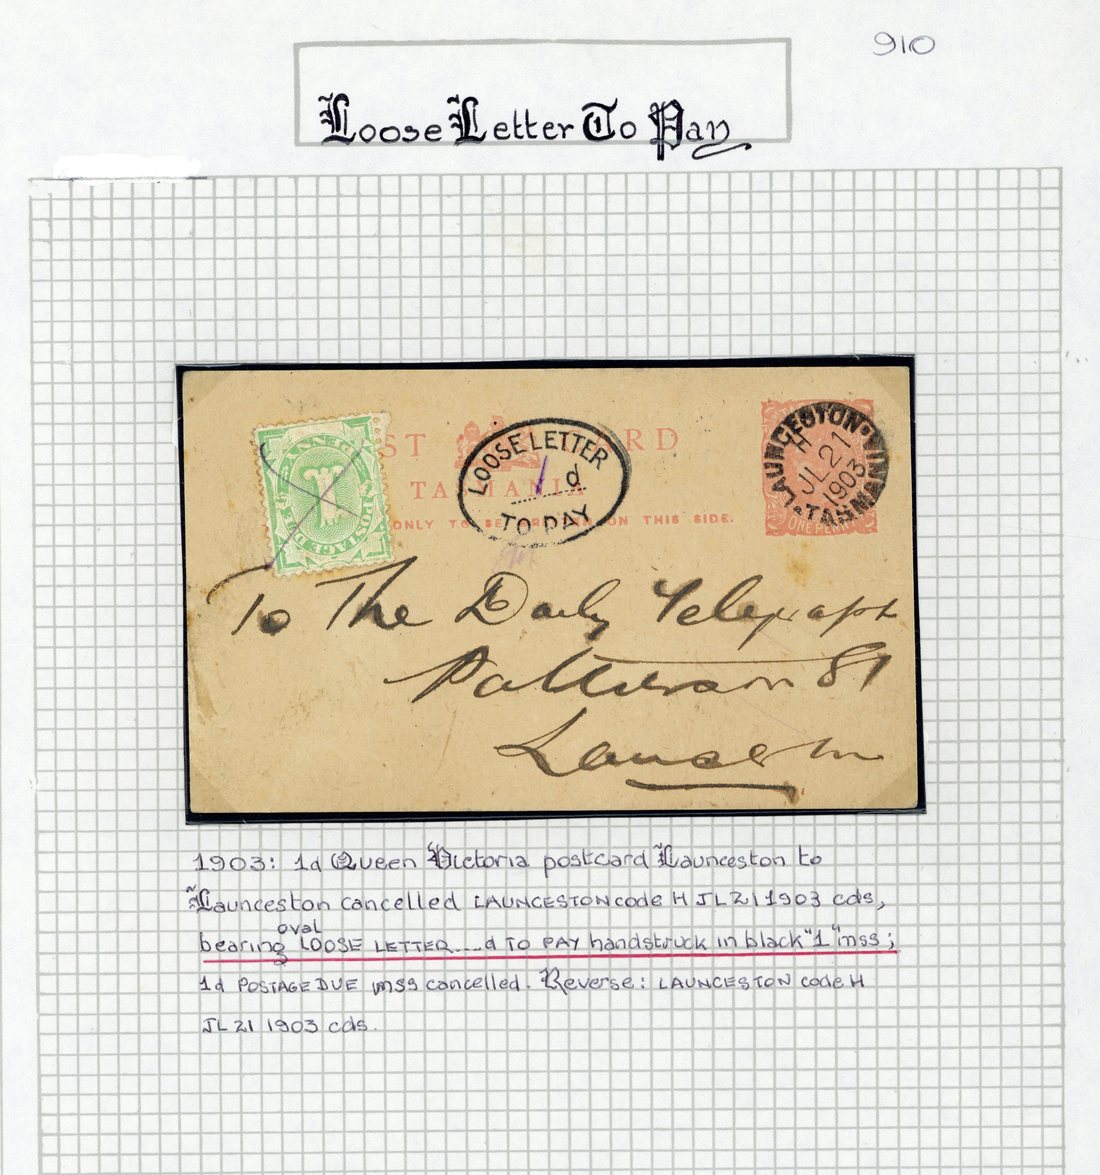 910
Loose Letter To Pay
POST CARD
TASMANIA
ONLY TO BE ON THIS SIDE.
LOOSE LETTER
1 d
TO PAY
POSTAGE DUE
PENNY
LAUNCESTON
H
JL 21
1903
TASMANIA
ONE PENNY
To The Daily Telegraph
Patterson St
Launceston
1903: 1d Queen Victoria postcard Launceston to
Launceston cancelled LAUNCESTON code H JL 21 1903 cds,
bearing oval LOOSE LETTER....d TO PAY handstruck in black "1" mss;
1d POSTAGE DUE mss cancelled. Reverse: LAUNCESTON code H
JL 21 1903 cds.